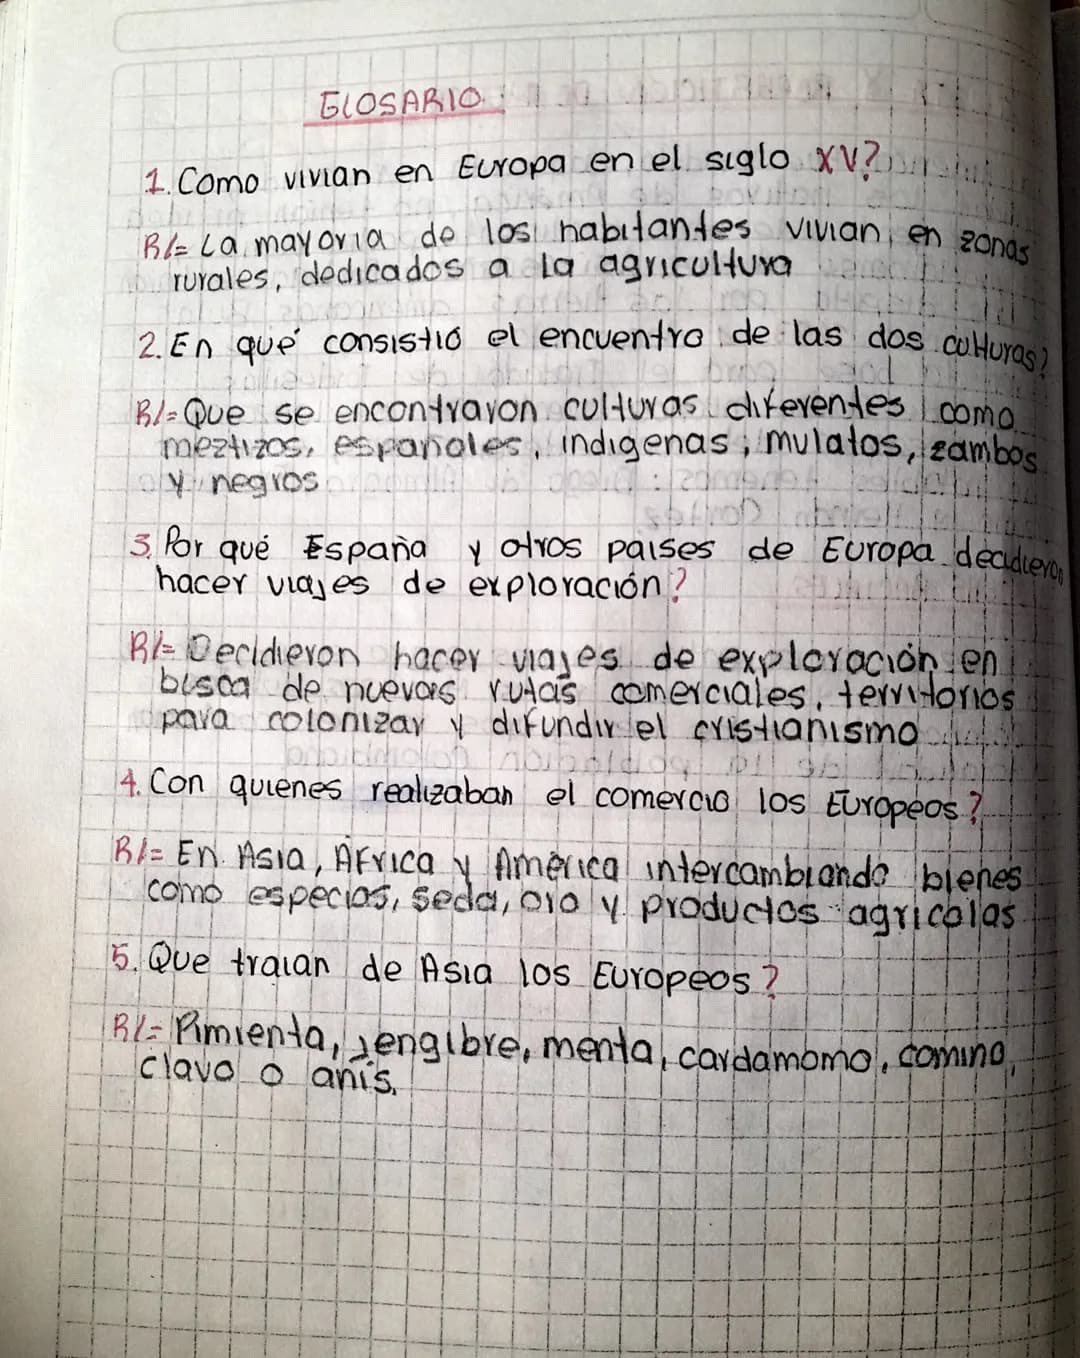 GLOSARIO:
1. Como vivian en Europa en el siglo XV?
R/= La mayoria de los habitantes vivian en zonas
rurales, dedicados a la agricultura
2. En qué consistió el encuentro de las dos culturas?
R/= Que se encontraron culturas diferentes como
meztizos, españoles, indigenas, mulatos, zambos
y negros
3. Por qué España y otros paises de Europa decidieron
hacer viajes de exploración?
R/= Decidieron hacer viajes de exploración en
busca de nuevas rutas comerciales, territorios
para colonizar y difundir el cristianismo
4. Con quienes realizaban el comercio los Europeos?
R/= En Asia, Africa y América intercambiando bienes
como especias, seda, oro y productos agricolas
5. Que traian de Asia los Europeos?
R/= Pimienta, jengibre, menta, cardamomo, comino,
clavo o anís.